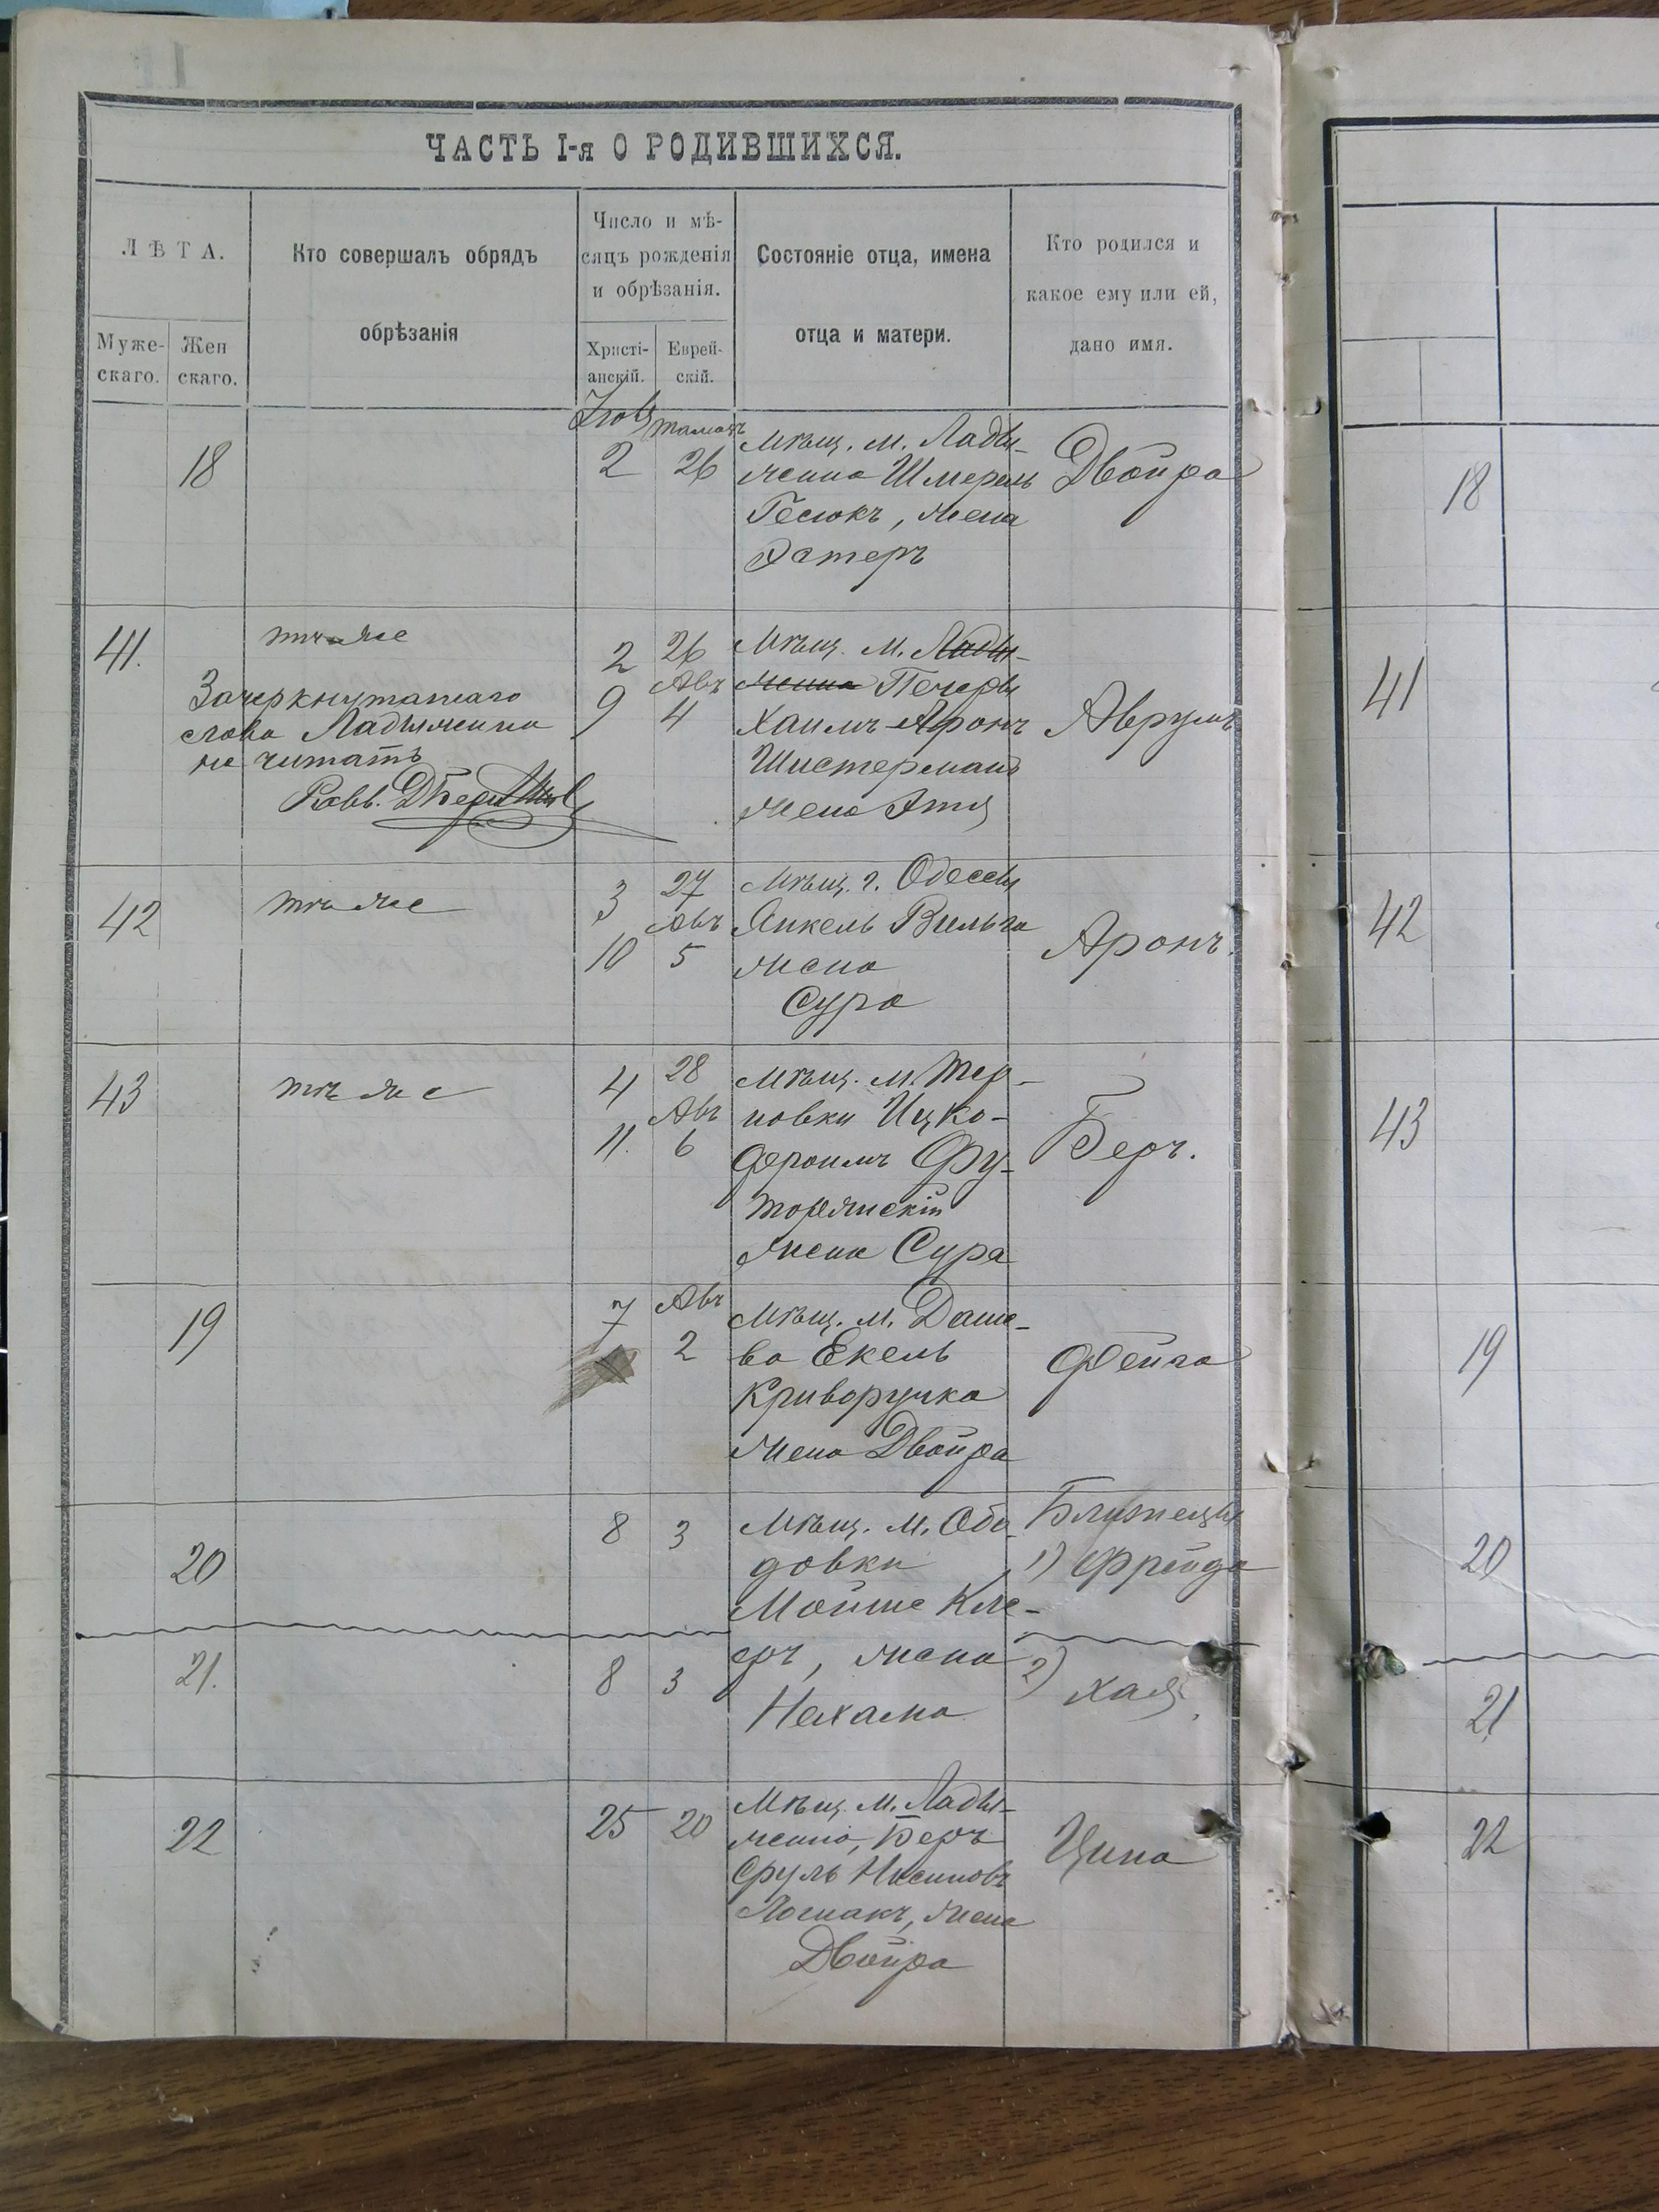 ЧАСТЬ I-я О РОДИВШИХСЯ.
ЛѢТА.
Муже-
скаго.
Жен
скаго.
Кто совершалъ обрядъ
обрѣзанія
Число и мѣ-
сяцъ рожденія
и обрѣзанія.
Христі-
анскій.
Еврей-
скій.
Состояніе отца, имена
отца и матери.
Кто родился и
какое ему или ей,
дано имя.
18
2
26
Мѣщ. м. Лады-
жина Шмерель
жена
Эстеръ
Двойра
41.
тѣ-же
Зачеркнутаго
слова Ладыжина
не читать
Равв.
2
26
Авъ
9
4
Мѣщ. м. Лады-
жина Печеры
Хаимъ-Аронъ
Шистерманъ
жена Этя
Аврумъ
42
тѣ же
3
27
Авъ
10
5
Мѣщ. г. Одессы
Янкель Вильга
жена
Сура
Аронъ.
43
тѣ же
4
28
Авъ
11.
6
Мѣщ. м. Тер-
новки Ицко-
Фроимъ Фу-
торянскій
жена Сура
Беръ.
19
7
Авъ
2
Мѣщ. м. Даше-
ва Екель
Криворучка
жена Двойра
Фейга
20
8
3
Мѣщ. м. Обо-
довки
Мойше Кле-
Близнецы
1) Фрейда
21.
8
3
ръ, жена
Нехама
2) Хая.
22
25
20
Мѣщ. м. Лады-
жина, Беръ
Сруль Нисиновъ
Лошакъ, жена
Двойра
Цина
18
41
42
43
19
20
21
22